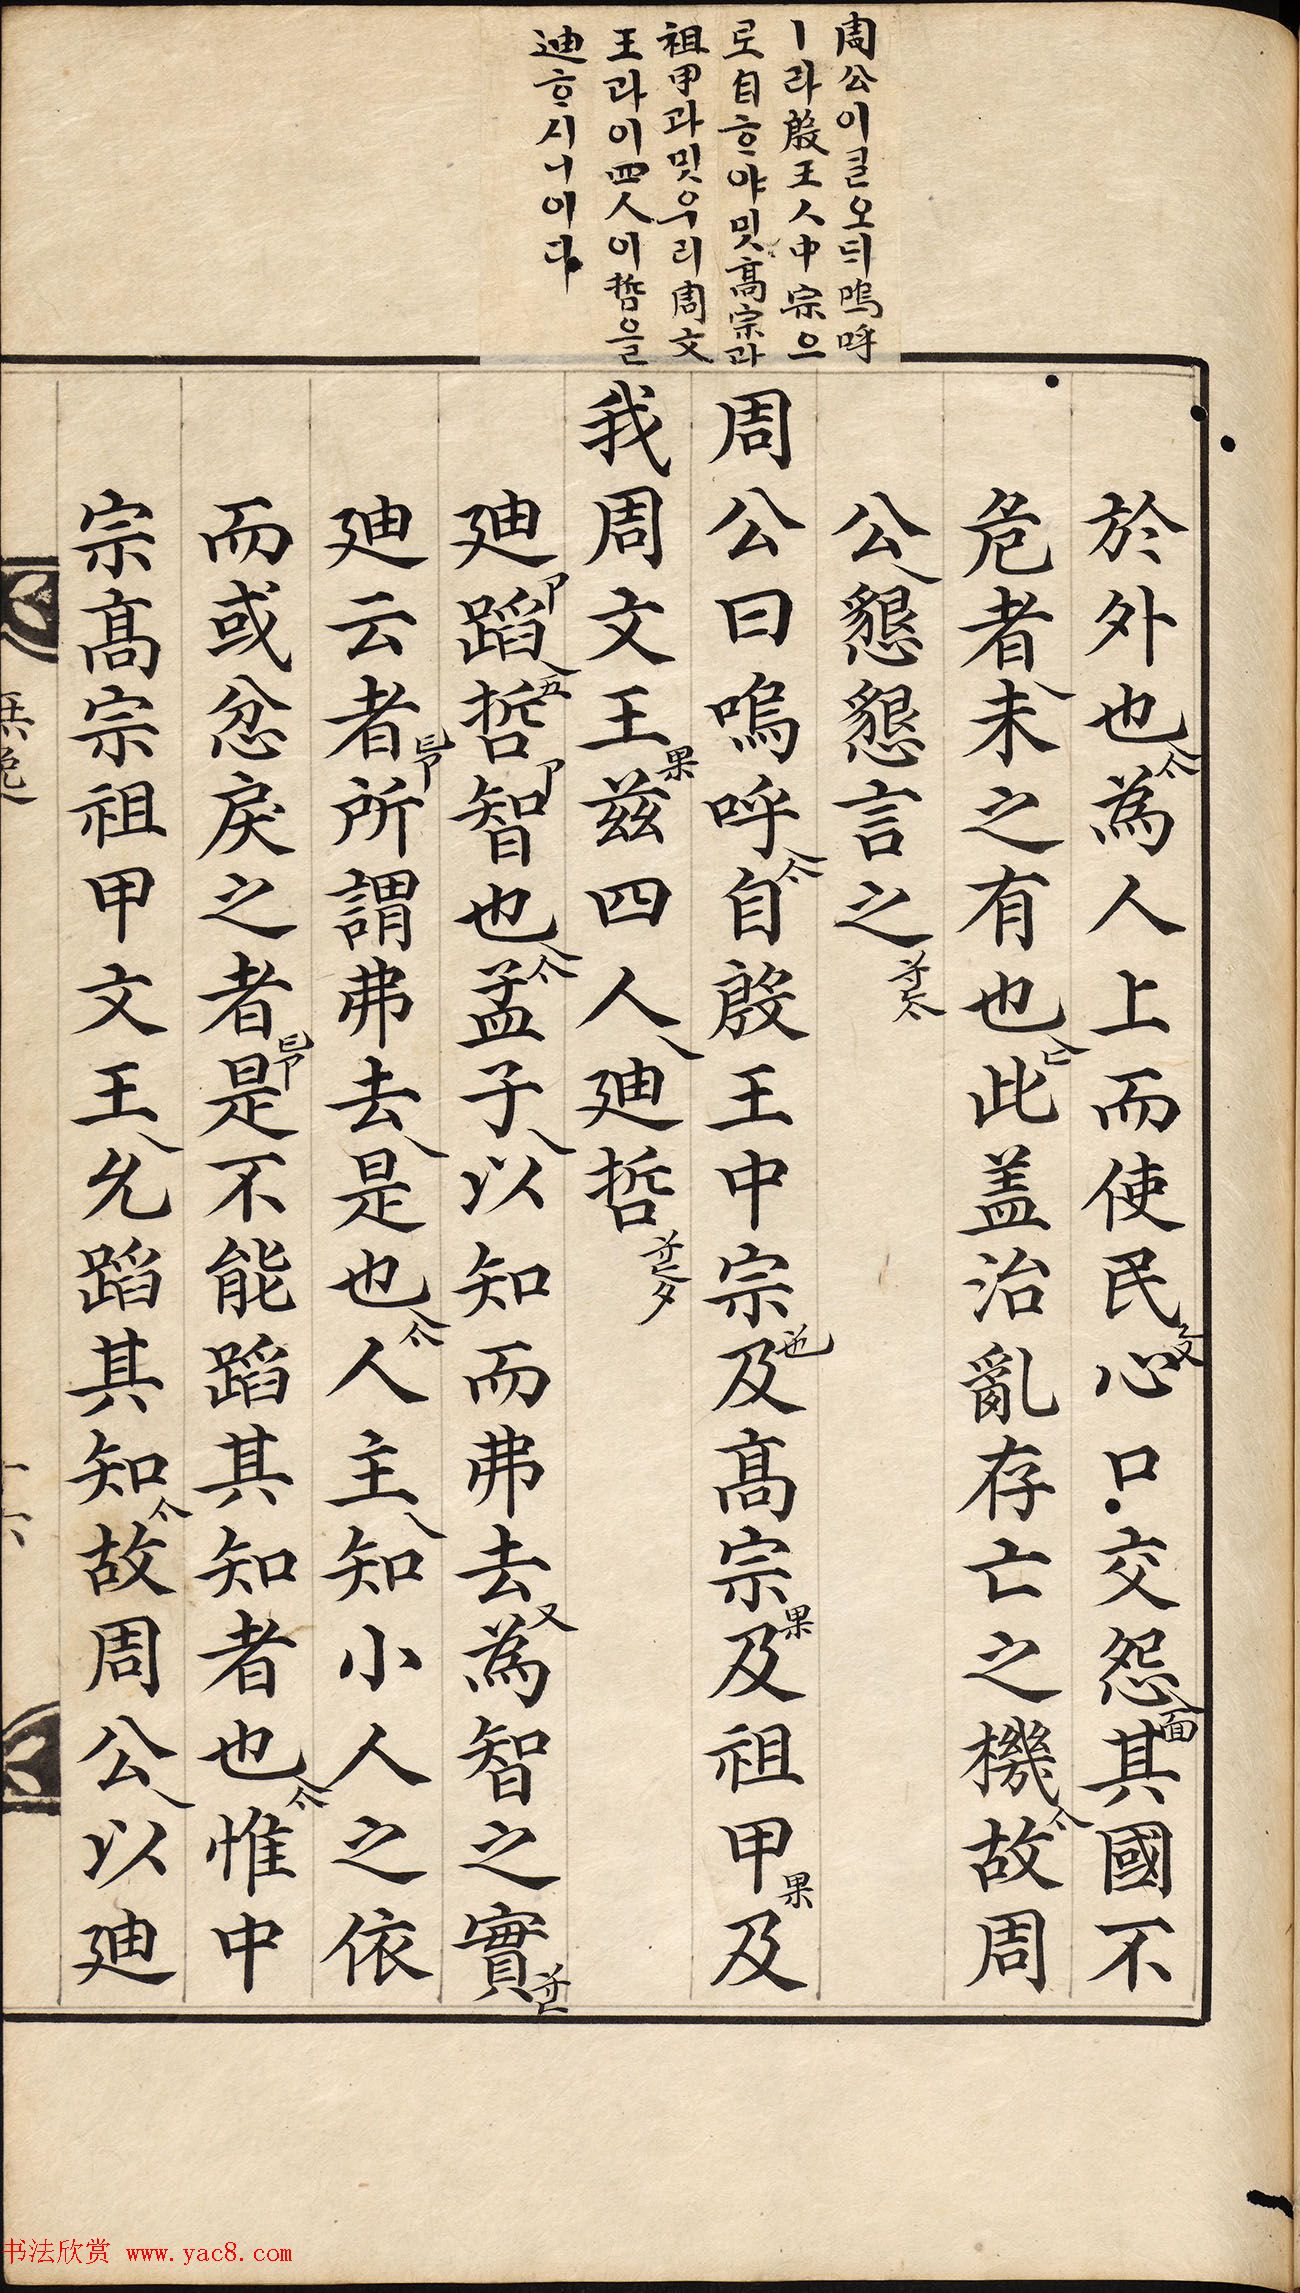 周公이ᄀᆞᆯ오ᄃᆡ嗚呼
ㅣ라殷王人中宗으
로自ᄒᆞ야밋高宗과
祖甲과밋우리周文
王과이四人이哲을
迪ᄒᆞ시니이다
於外也為人上而使民心口交怨其國不
危者未之有也此盖治亂存亡之機故周
公懇懇言之
周公曰嗚呼自殷王中宗及高宗及祖甲及
我周文王兹四人迪哲
迪蹈哲智也孟子以知而弗去為智之實
迪云者所謂弗去是也人主知小人之依
而或忿戾之者是不能蹈其知者也惟中
宗高宗祖甲文王允蹈其知故周公以迪
书法欣赏 www.yac8.com